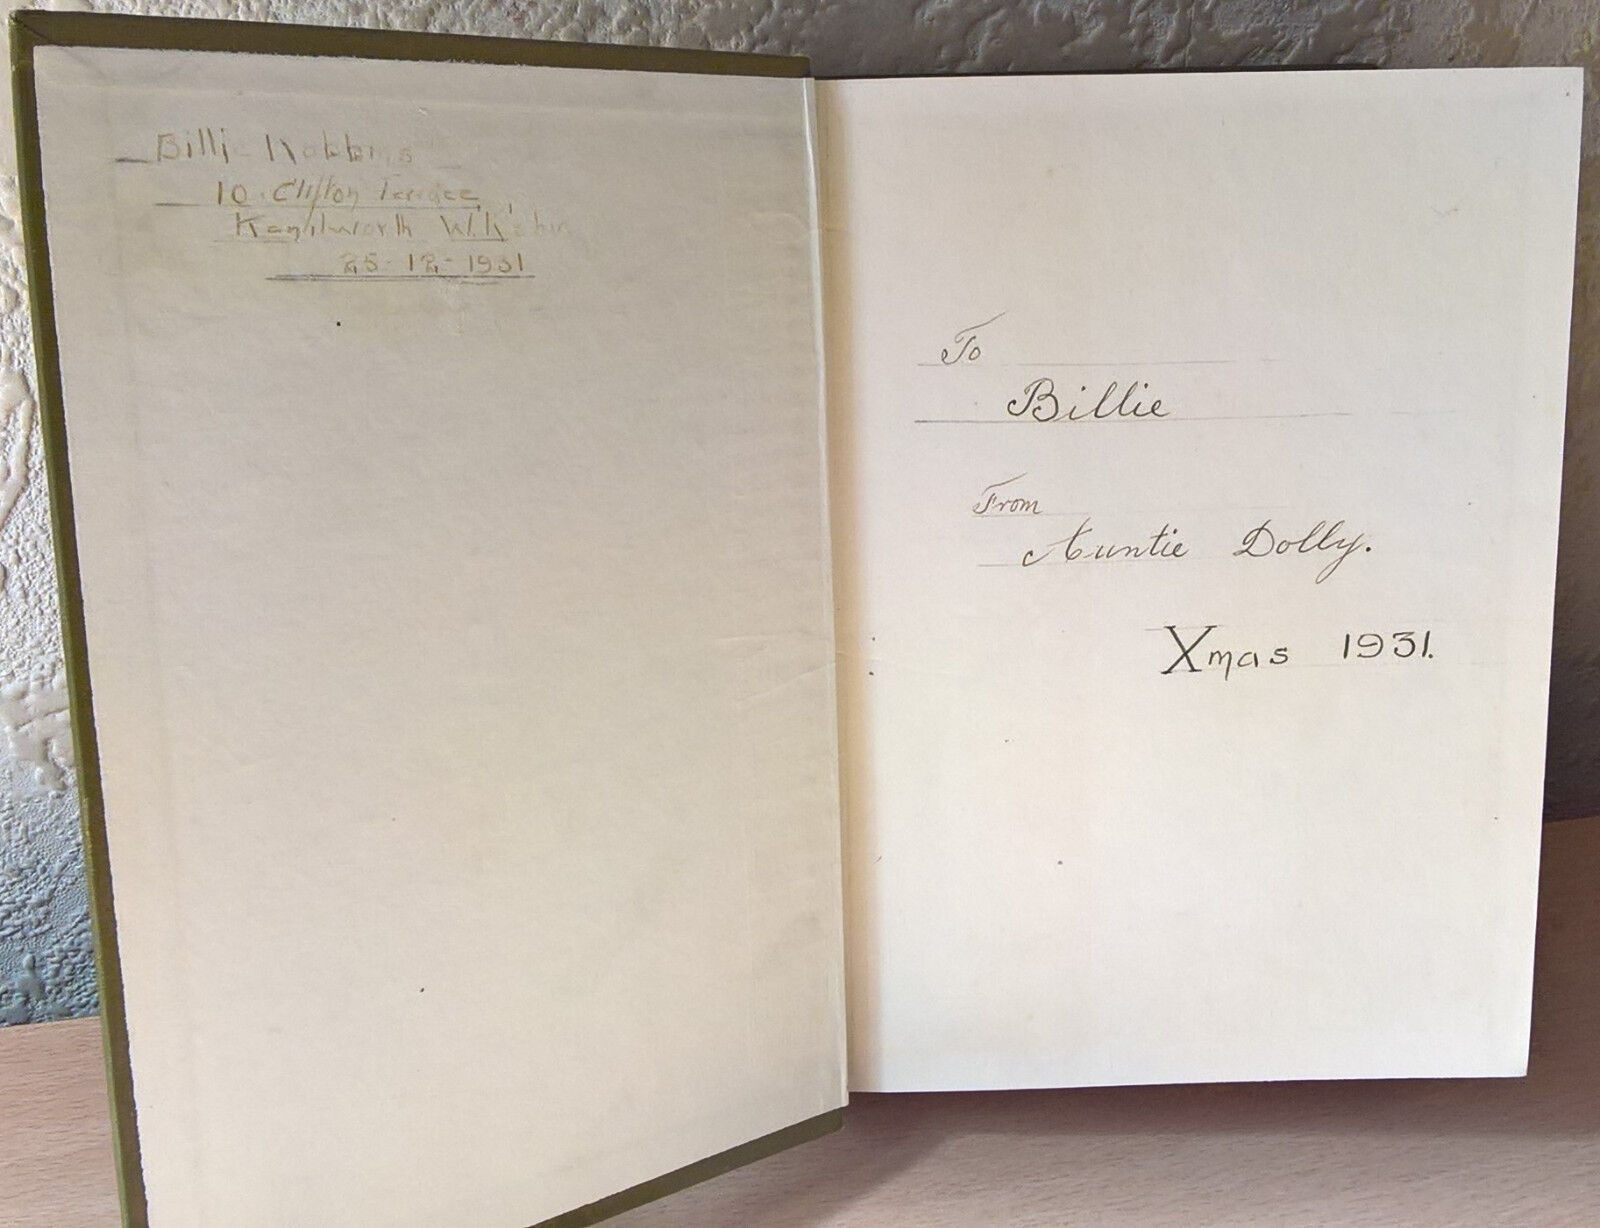 Billie Robbins
10. Clifton Terrace,
Kenilworth
25-12-1931
To
Billie
From
Auntie Dolly.
Xmas 1931.